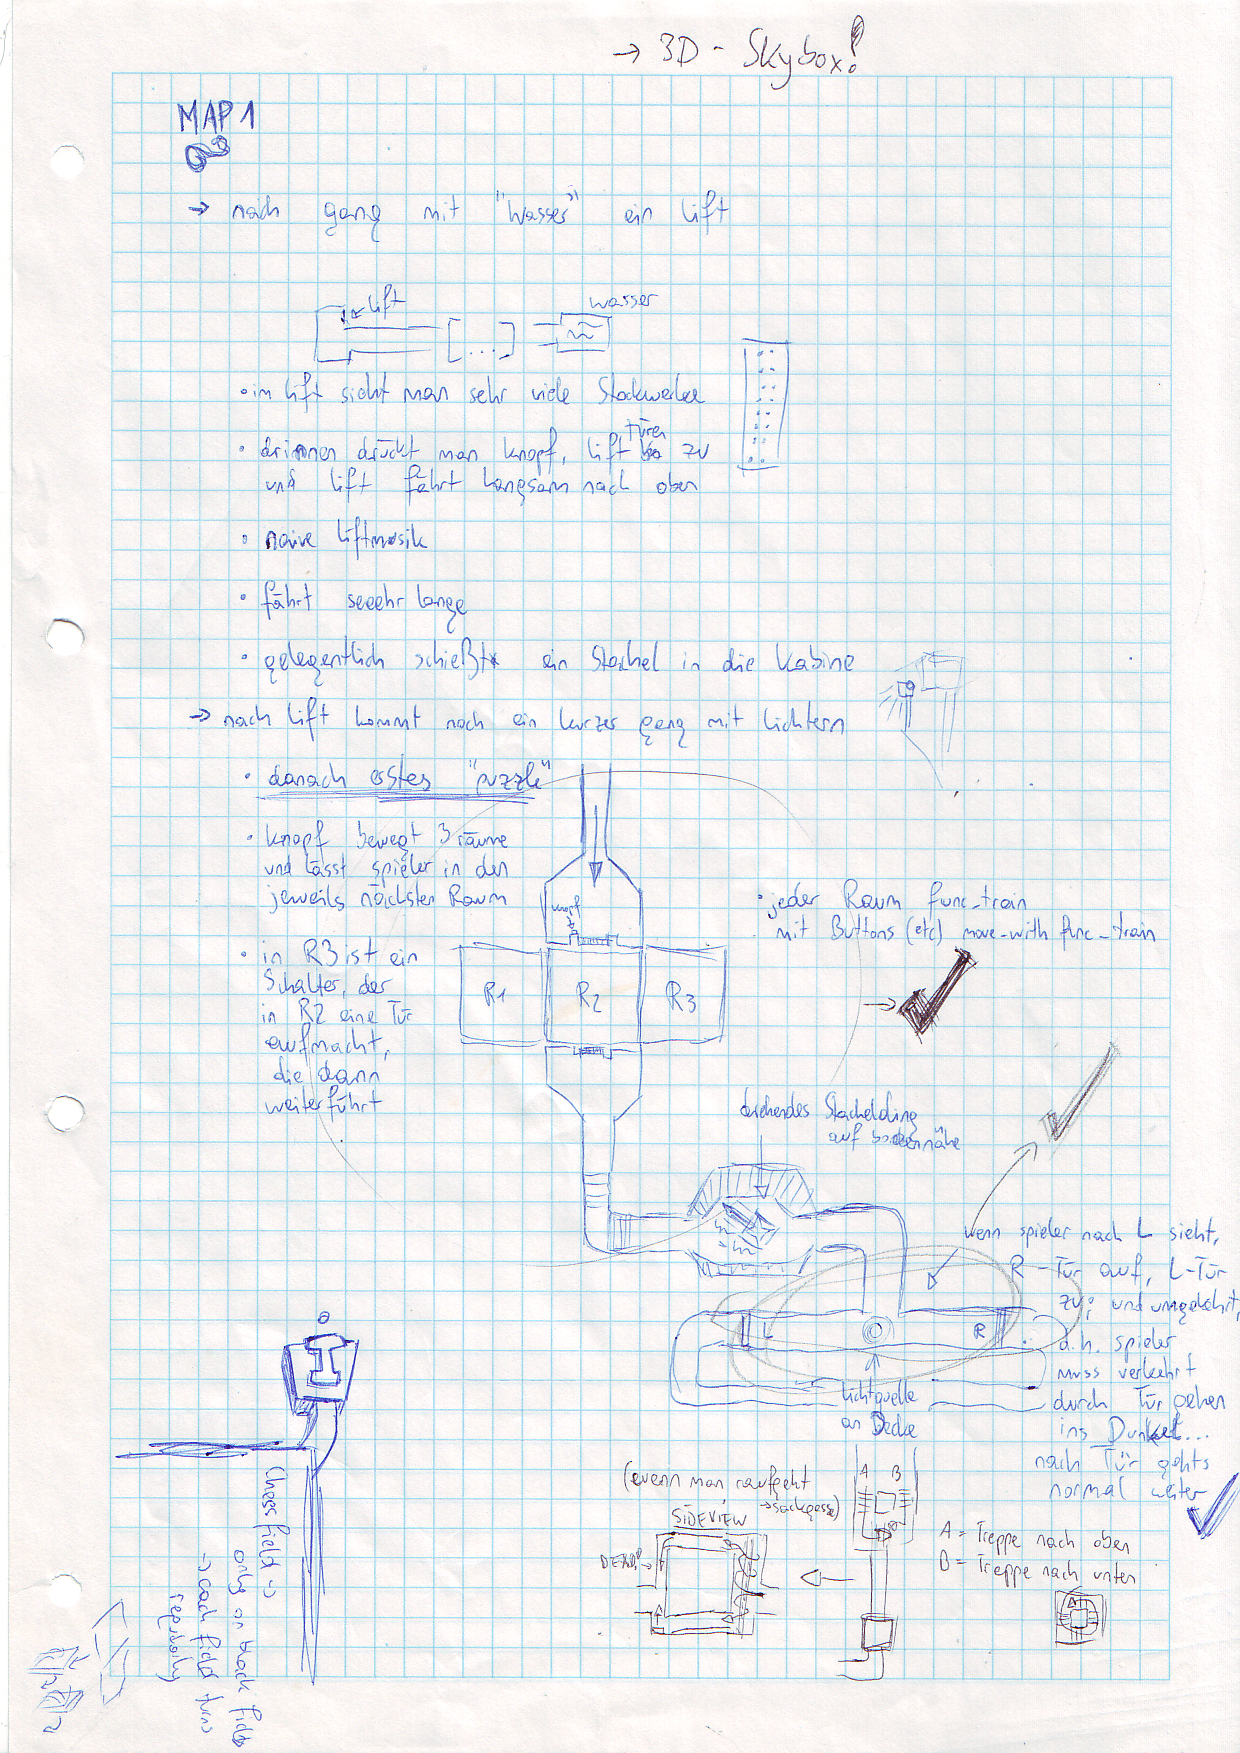 → 3D - Skybox!
MAP 1
→ nach gang mit "Wasser" ein Lift
Lift
wasser
[...]
• im Lift sieht man sehr viele Stockwerke
• drinnen drückt man Knopf, Lift Türen zu
und Lift fährt langsam nach oben
• naive Liftmusik
• fährt seeehr lange
• gelegentlich schießt ein Stachel in die Kabine
→ nach Lift kommt noch ein kurzer gang mit Lichtern
• danach erstes "puzzle"
• Knopf bewegt 3 räume
und lässt spieler in den
jeweils nächsten Raum
knopf
• jeder Raum func_train
mit Buttons (etc) move-with func_train
• in R3 ist ein
Schalter, der
in R2 eine Tür
aufmacht,
die dann
weiterführt
R1 R2 R3
drehendes Stachelding
auf bodennähe
wenn spieler nach L sieht,
R-Tür auf, L-Tür
zu; und umgekehrt,
d.h. spieler
muss verkehrt
durch Tür gehen
ins Dunkel...
nach Tür gehts
normal weiter
L R
Lichtquelle
an Decke
(wenn man raufgeht
→ sackgasse)
SIDEVIEW
A B
A = Treppe nach oben
B = Treppe nach unten
Chess field →
only on black fields
→ each field turns